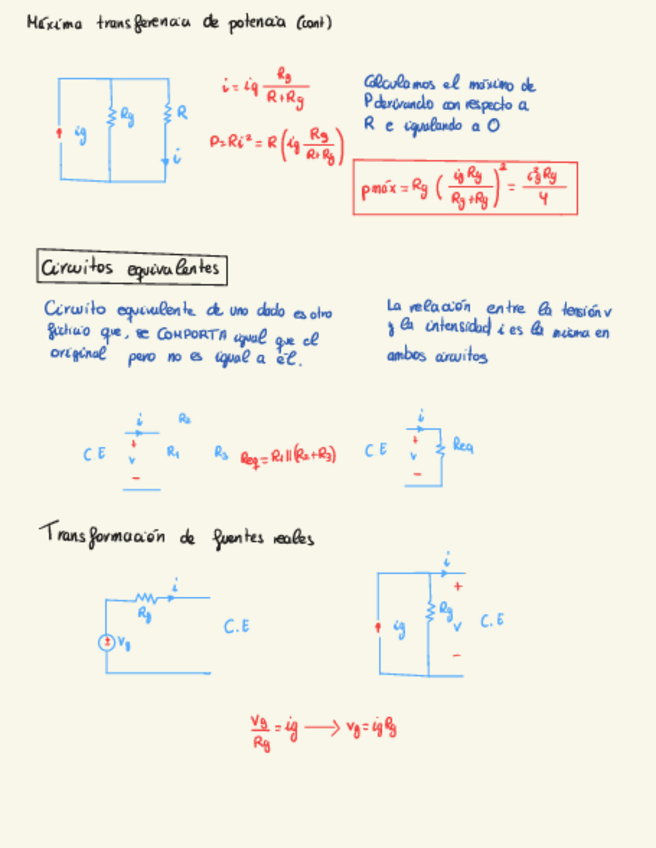 Máxima transferencia de potencia (cont)
i = ig Rg / (R+Rg)
P = Ri² = R (ig Rg / (R+Rg))
Calculamos el máximo de
P derivando con respecto a
R e igualando a 0
ig Rg R i
pmáx = Rg (ig Rg / (Rg+Rg))² = ig² Rg / 4
Circuitos equivalentes
Circuito equivalente de uno dado es otro
ficticio que, se COMPORTA igual que el
original pero no es igual a él.
La relación entre la tensión v
y la intensidad i es la misma en
ambos circuitos
i R2
C.E + v - R1 R3 Req = R1||(R2+R3)
i
C.E + v - Req
Transformación de fuentes reales
i
Rg
Vg
C.E
i
ig Rg + v - C.E
Vg / Rg = ig → vg = ig Rg